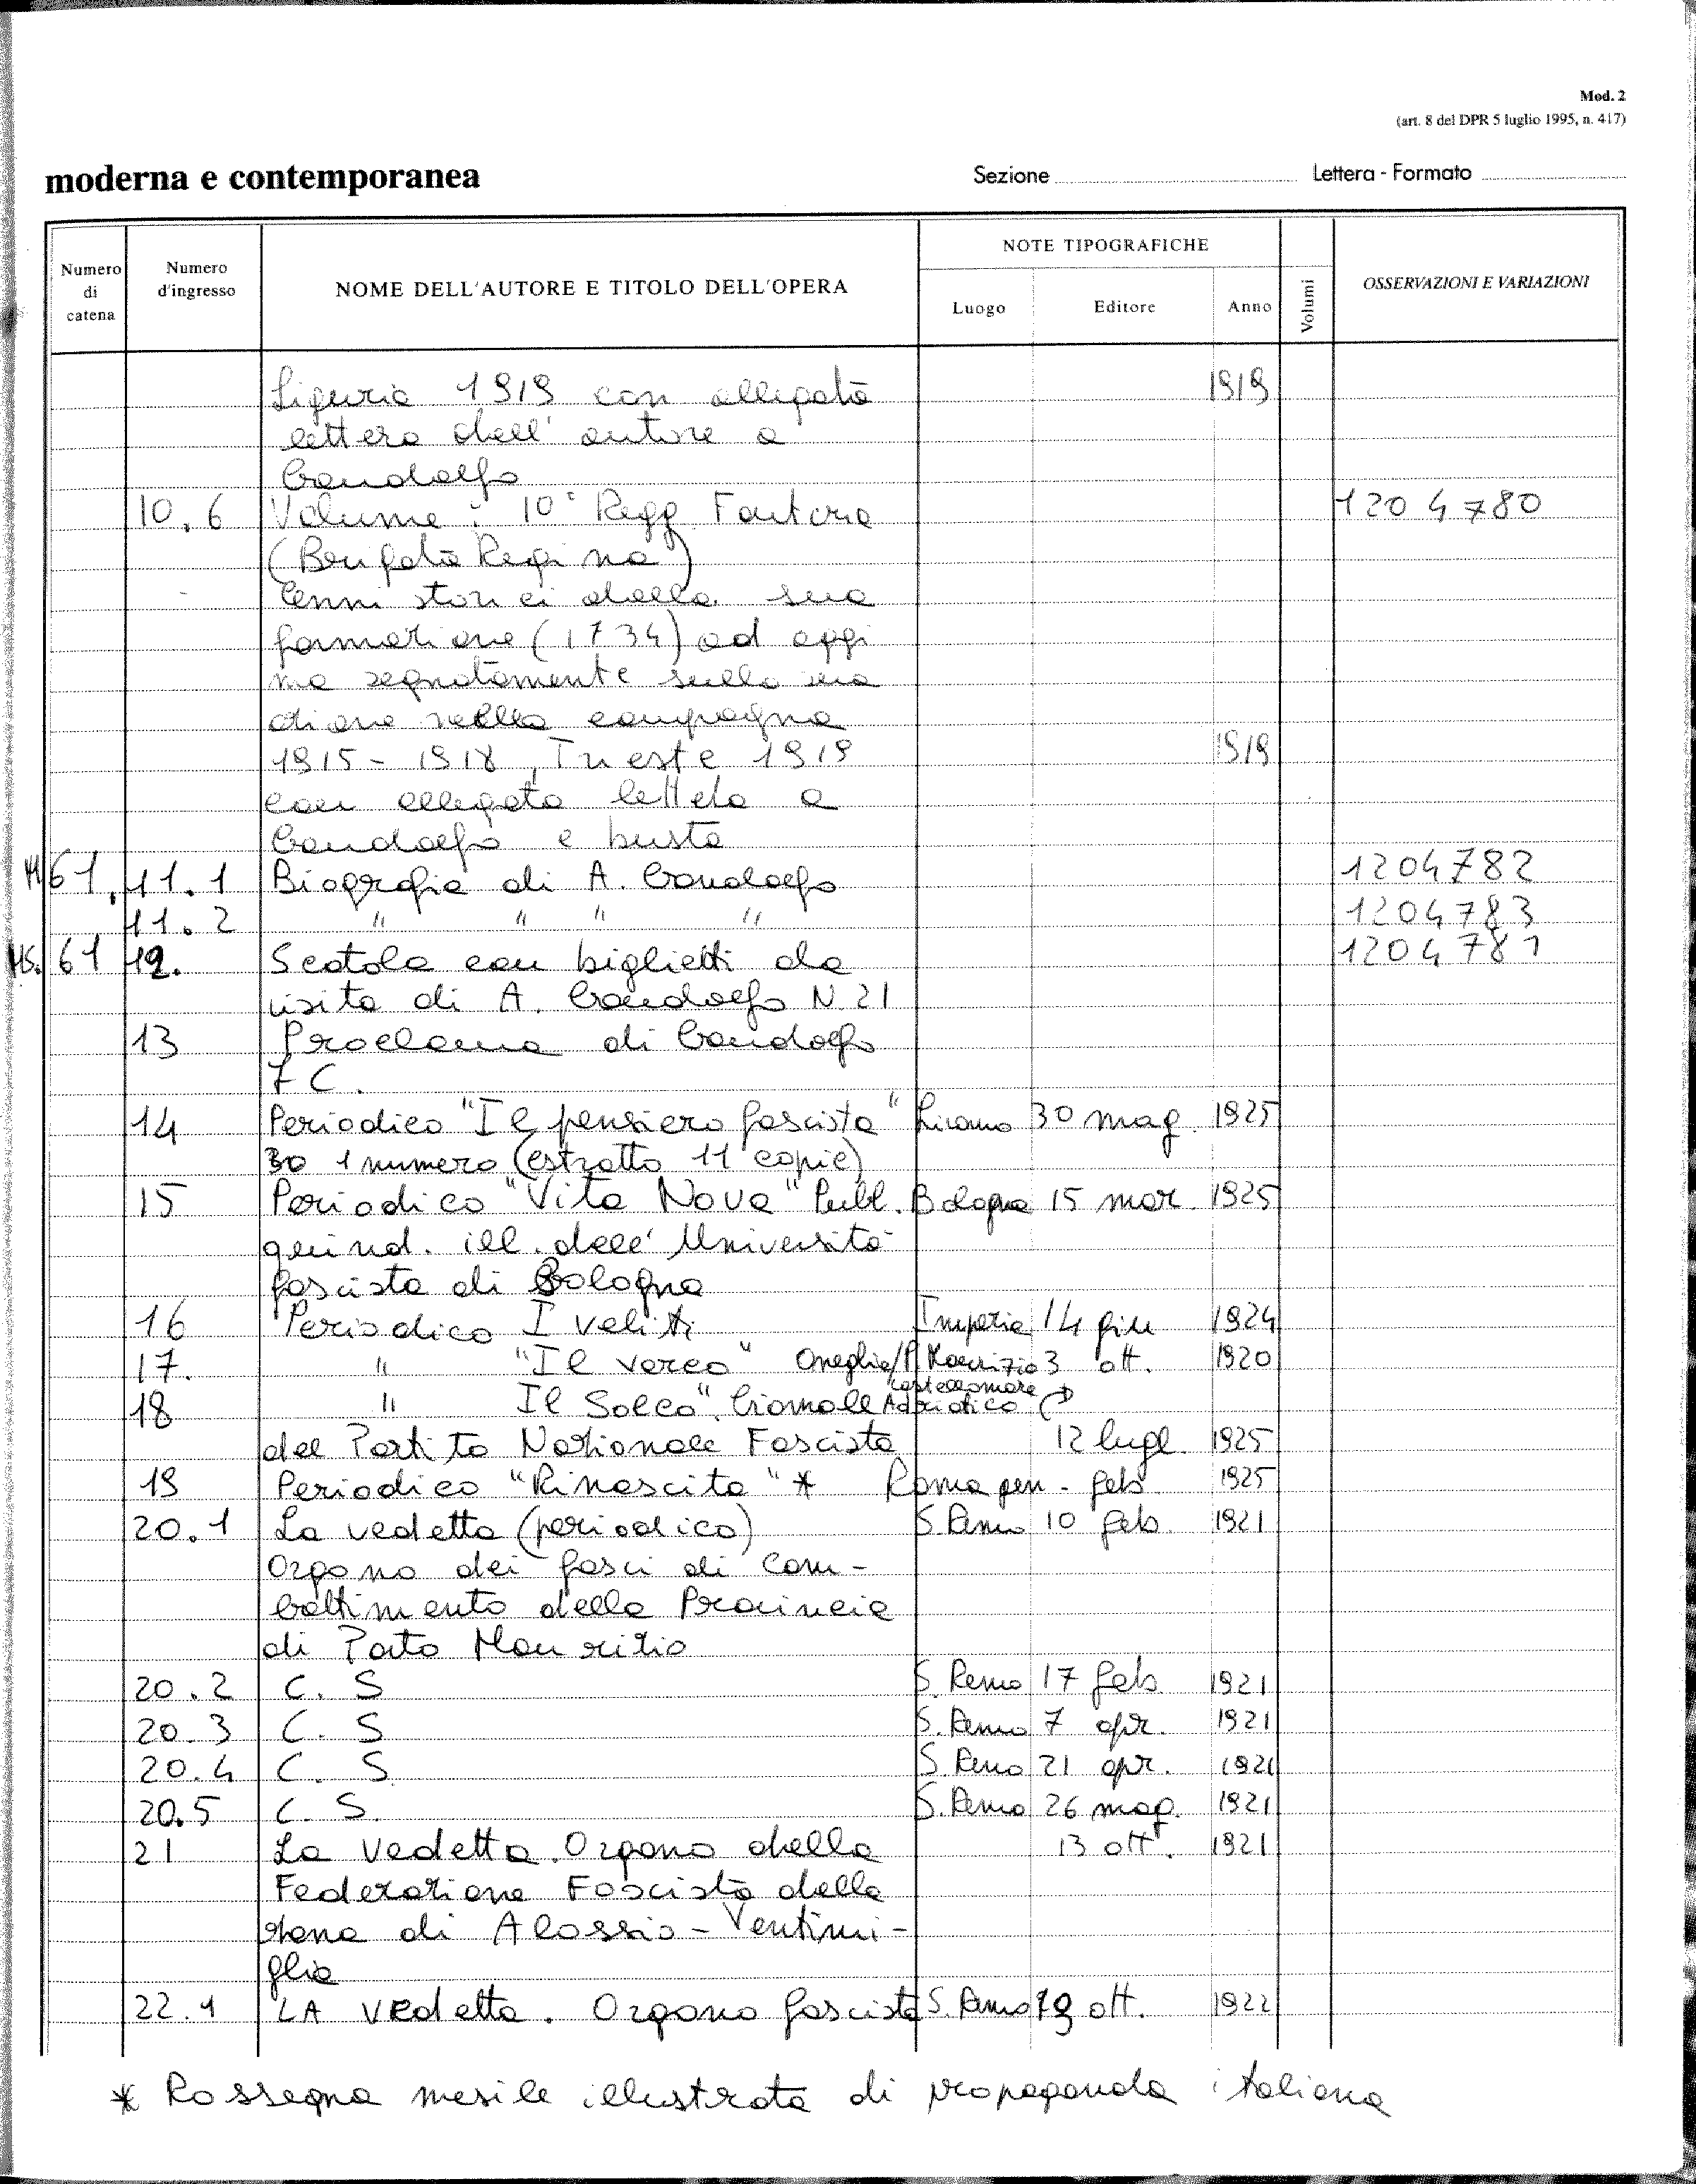 Mod. 2
(art. 8 del DPR 5 luglio 1995, n. 417)
moderna e contemporanea Sezione Lettera - Formato
Numero di catena Numero d'ingresso NOME DELL'AUTORE E TITOLO DELL'OPERA NOTE TIPOGRAFICHE Luogo Editore Anno Volumi OSSERVAZIONI E VARIAZIONI
Liguria 1919 con allegata 1919
lettera dell' autore a
Gandolfo
10.6 Volume: 10° Regg Fanteria 1204780
(Brigata Regina)
Cenni storici dalla sua
formazione (1734) ad oggi
ma segnatamente sulla sua
azione nella campagna
1915 - 1918, Trieste 1919 1919
con allegata lettera a
Gandolfo e busta
61. 11.1 Biografia di A. Gandolfo 1204782
11.2 " " " " 1204783
MS. 61 12. Scatola con biglietti da 1204781
visita di A. Gandolfo N. 21
13 Proclama di Gandolfo
7 C.
14 Periodico "Il pensiero fascista" 30 mag. 1925
30 1 numero (estratto 11 copie)
15 Periodico "Vita Nova" Pubb. Bologna 15 mar. 1925
quind. ill. dell' Università
fascista di Bologna
16 Periodico I Veliti Imperia 14 giu 1924
17. " "Il verco" Oneglia/P. Maurizio 3 ott. 1920
18 " Il Solco". Giornale Castellamare Adriatico
del Partito Nazionale Fascista 12 lugl. 1925
19 Periodico "Rinascita" * Roma gen - feb 1925
20.1 La vedetta (periodico) S. Remo 10 feb. 1921
Organo dei fasci di com-
battimento della Provincia
di Porto Maurizio
20.2 C. S S. Remo 17 feb 1921
20.3 C. S S. Remo 7 apr. 1921
20.4 C. S S. Remo 21 apr. 1921
20.5 C. S. S. Remo 26 mag. 1921
21 La Vedetta. Organo della 13 ott. 1921
Federazione Fascista della
zona di Alassio - Ventimi-
glia
22.1 LA VEdetta. Organo fascista S. Remo 19 ott. 1922
* Rassegna mesile illustrata di propaganda italiana